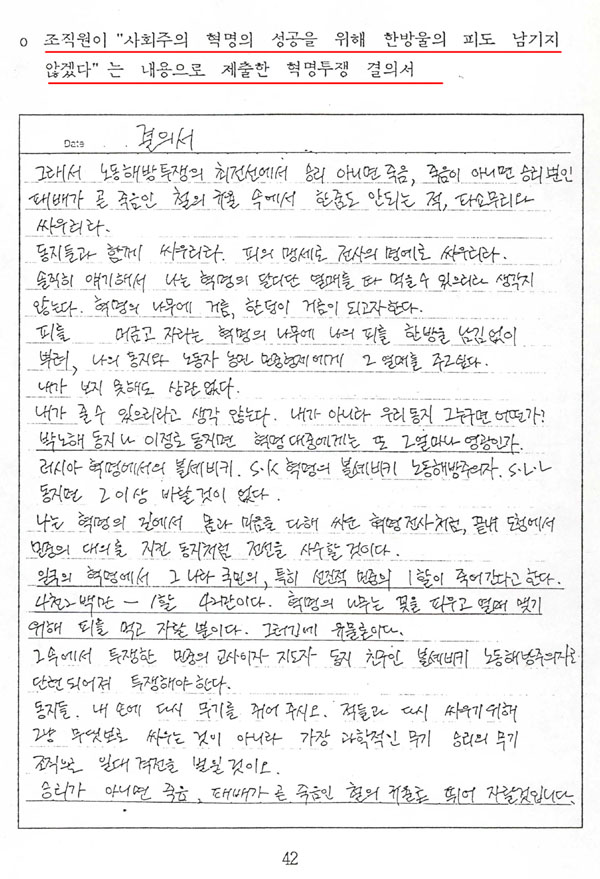 o 조직원이 "사회주의 혁명의 성공을 위해 한방울의 피도 남기지
않겠다"는 내용으로 제출한 혁명투쟁 결의서
Date 결의서
그래서 노동해방투쟁의 최전선에서 승리 아니면 죽음, 죽음이 아니면 승리뿐인
패배가 곧 죽음인 철의 규율 속에서 한줌도 안되는 적, 타소무리와
싸우리라.
동지들과 함께 싸우리라. 피의 맹세로 전사의 명예로 싸우리라.
솔직히 얘기해서 나는 혁명의 달디단 열매를 따 먹을수 있으리라 생각지
않는다. 혁명의 나무에 거름, 한덩이 거름이 되고자한다.
피를 머금고 자라는 혁명의 나무에 나의 피를 한방울 남김없이
뿌려, 나의 동지와 노동자 농민 민중형제에게 그 열매를 주고싶다.
내가 보지 못해도 상관 없다.
내가 줄수 있으리라고 생각 않는다. 내가 아니라 우리동지 그누구면 어떤가?
박노해 동지나 이정로 동지면 혁명 대중에게는 또 그얼마나 영광인가.
러시아 혁명에서의 볼셰비키. S.K 혁명의 볼셰비키 노동해방주의자. S.L.L
동지면 그 이상 바랄것이 없다.
나는 혁명의 길에서 몸과 마음을 다해 싸운 혁명전사처럼, 끝내 모험에서
민중의 대의를 지킨 동지처럼 전선을 사수할 것이다.
일국의 혁명에서 그 나라 국민의, 특히 선진적 민중의 1할이 죽어간다고 한다.
4천2백만 - 1할 42만이다. 혁명의 나무는 꽃을 피우고 열매 맺기
위해 피를 먹고 자랄 뿐이다. 그러길에 유물론이다.
그속에서 투쟁한 민중의 교사이자 지도자 동지 친구인 볼셰비키 노동해방주의자로
단련되어져 투쟁해야한다.
동지들. 내 손에 다시 무기를 쥐어 주시오. 적들과 다시 싸우기위해
그냥 무턱대로 싸우는 것이 아니라 가장 과학적인 무기 승리의 무기
조직으로 일대 격전을 벌일 것이오.
승리가 아니면 죽음, 패배가 곧 죽음인 철의 규율로 뛰어 자랄것입니다.
42